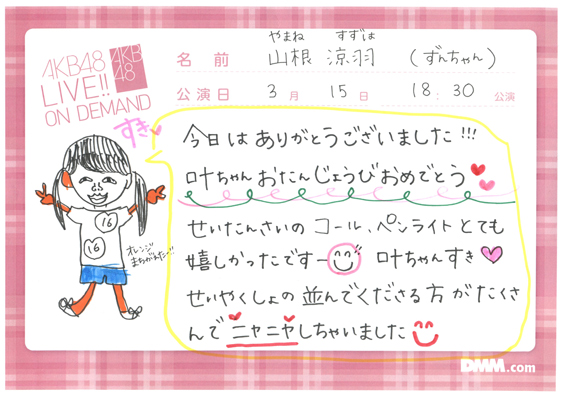 AKB48
LIVE!!
ON DEMAND
AKB
48
やまね すずは
名前 山根 涼羽 (ずんちゃん)
公演日 3月 15日 18:30 公演
すき
今日は ありがとうございました!!!
叶ちゃん おたんじょうびおめでとう
せいたんさいの コール、ペンライト とても
嬉しかったですー 叶ちゃんすき
せいやくしょの 並んでくださる方 がたくさ
んで ニヤニヤしちゃいました
16
16
オレンジ
まちがえたー!!
DMM.com